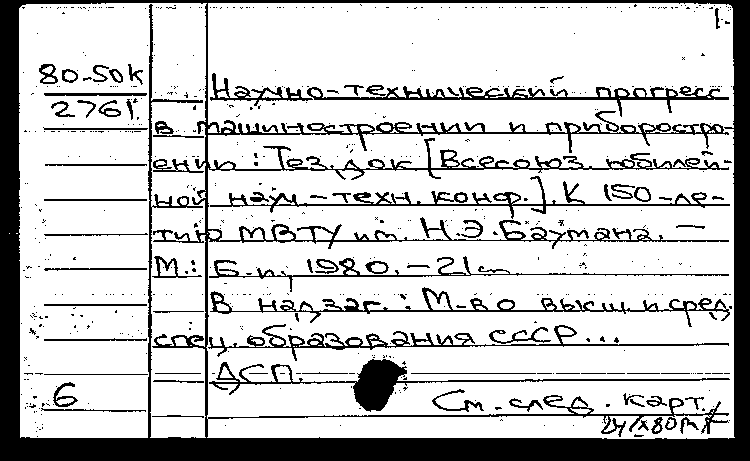 1.
80-50к
2761.
Научно-технический прогресс
в машиностроении и приборостро-
ении: Тез. док [Всесоюз. юбилей-
ной науч-техн. конф.]. К 150-ле-
тию МВТУ им. Н.Э.Баумана. —
М.: Б.и., 1980. - 21 см
В надзаг.: М-во высш. и сред.
спец. образования СССР...
ДСП.
6
См. след. карт.